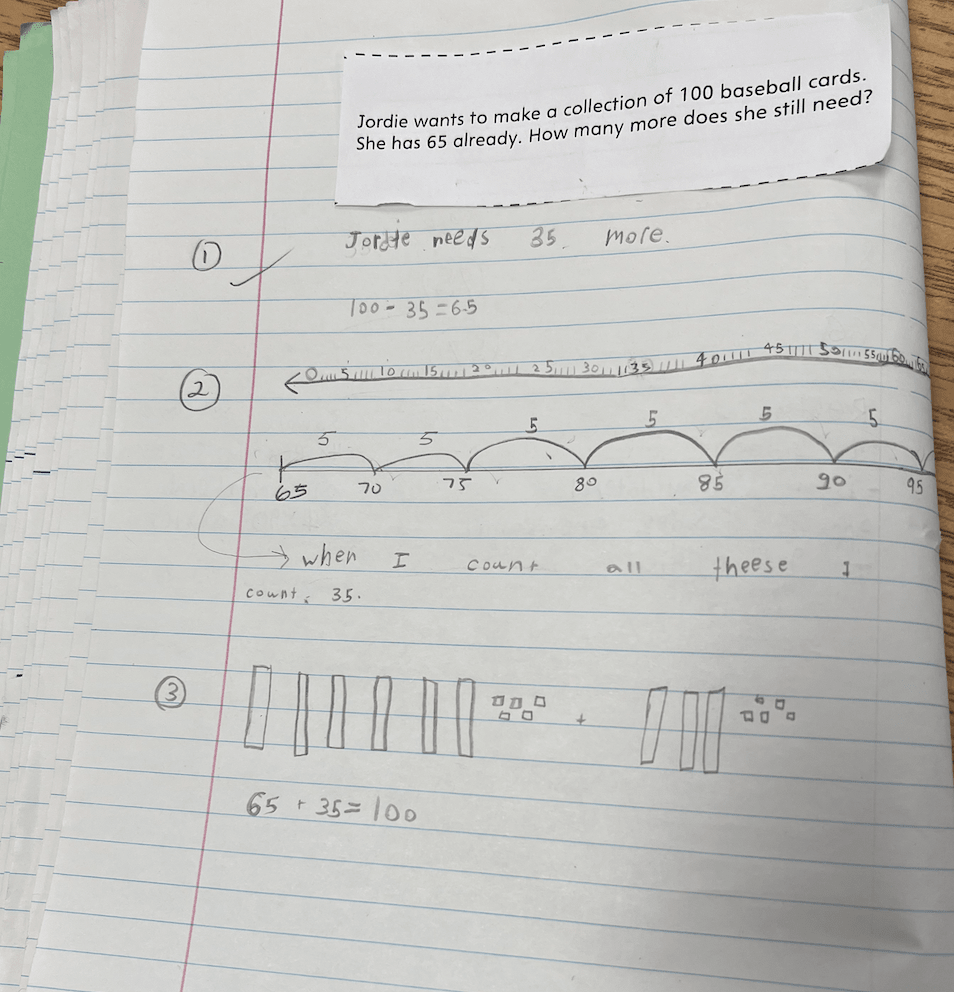 Jordie wants to make a collection of 100 baseball cards.
She has 65 already. How many more does she still need?
① Jordie needs 35 more.
100 - 35 = 65
② 0 5 10 15 20 25 30 35 40 45 50 55 60
5 5 5 5 5 5
65 70 75 80 85 90 95
when I count all theese I
count. 35.
③ +
65 + 35 = 100